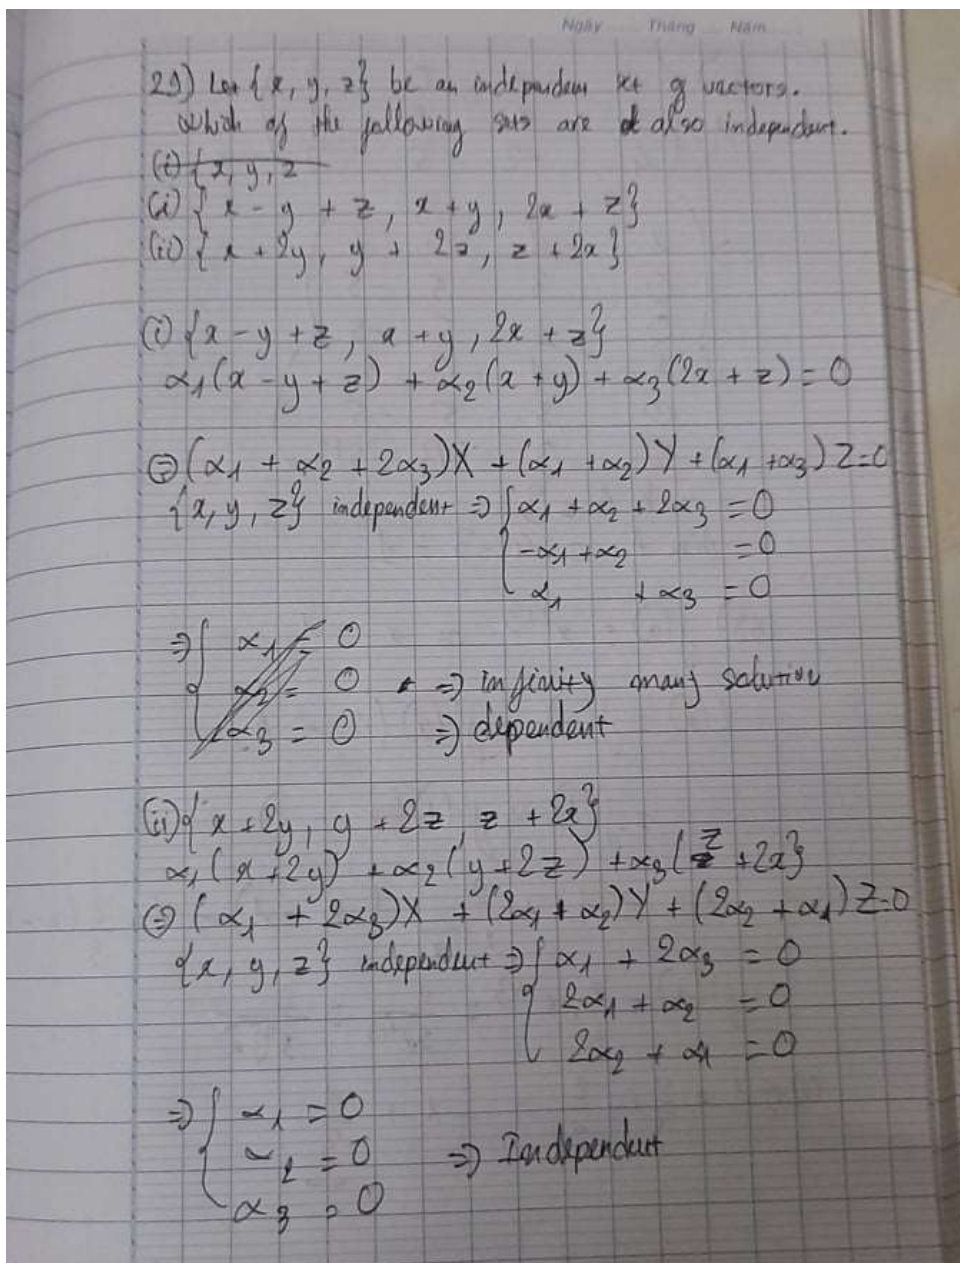 Ngày Tháng Năm
29) Let {x, y, z} be an independen set of vactors.
Which of the following sets are also independent.
(i) {x, y, z
(i) {x - y + z, x + y, 2x + z}
(ii) {x + 2y, y + 2z, z + 2x}
(i) {x - y + z, x + y, 2x + z}
α1(x - y + z) + α2(x + y) + α3(2x + z) = 0
⇔ (α1 + α2 + 2α3)X + (α1 + α2)Y + (α1 + α3)Z = 0
{x, y, z} independent ⇒ { α1 + α2 + 2α3 = 0
-α1 + α2 = 0
α1 + α3 = 0
⇒ { α1 = 0
α2 = 0 ⇒ infinity many solution
α3 = 0 ⇒ dependent
(ii) {x + 2y, y + 2z, z + 2x}
α1(x + 2y) + α2(y + 2z) + α3(z + 2x}
⇔ (α1 + 2α3)X + (2α1 + α2)Y + (2α2 + α1)Z = 0
{x, y, z} independent ⇒ { α1 + 2α3 = 0
2α1 + α2 = 0
2α2 + α1 = 0
⇒ { α1 = 0
α2 = 0 ⇒ Independent
α3 = 0